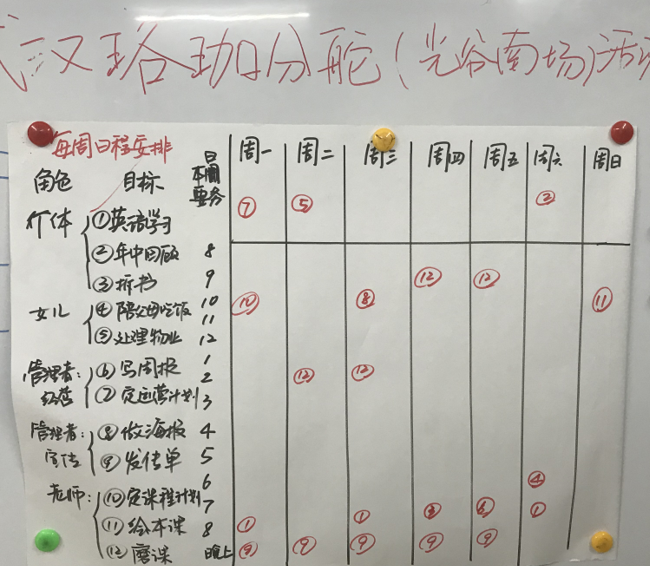 武汉珞珈分舵(光谷南场)活动
每周日程安排
角色 目标 本周要务 周一 周二 周三 周四 周五 周六 周日
⑦ ⑤ ②
个体 ①英语学习
②年中回顾 8
③拆书 9 ⑫ ⑫
女儿 ④陪父母吃饭 10 ⑩ ⑧ ⑪
⑤处理物业 11
12
管理者:经营 ⑥写周报 1
2 ⑫ ⑫
⑦定运营计划 3
管理者:宣传 ⑧做海报 4
⑨发传单 5
6 ④
老师: ⑩定课程计划 7 ① ⑥ ①
⑪绘本课 8 ①
⑫磨课 晚上 ⑨ ⑨ ⑨ ⑨ ⑨